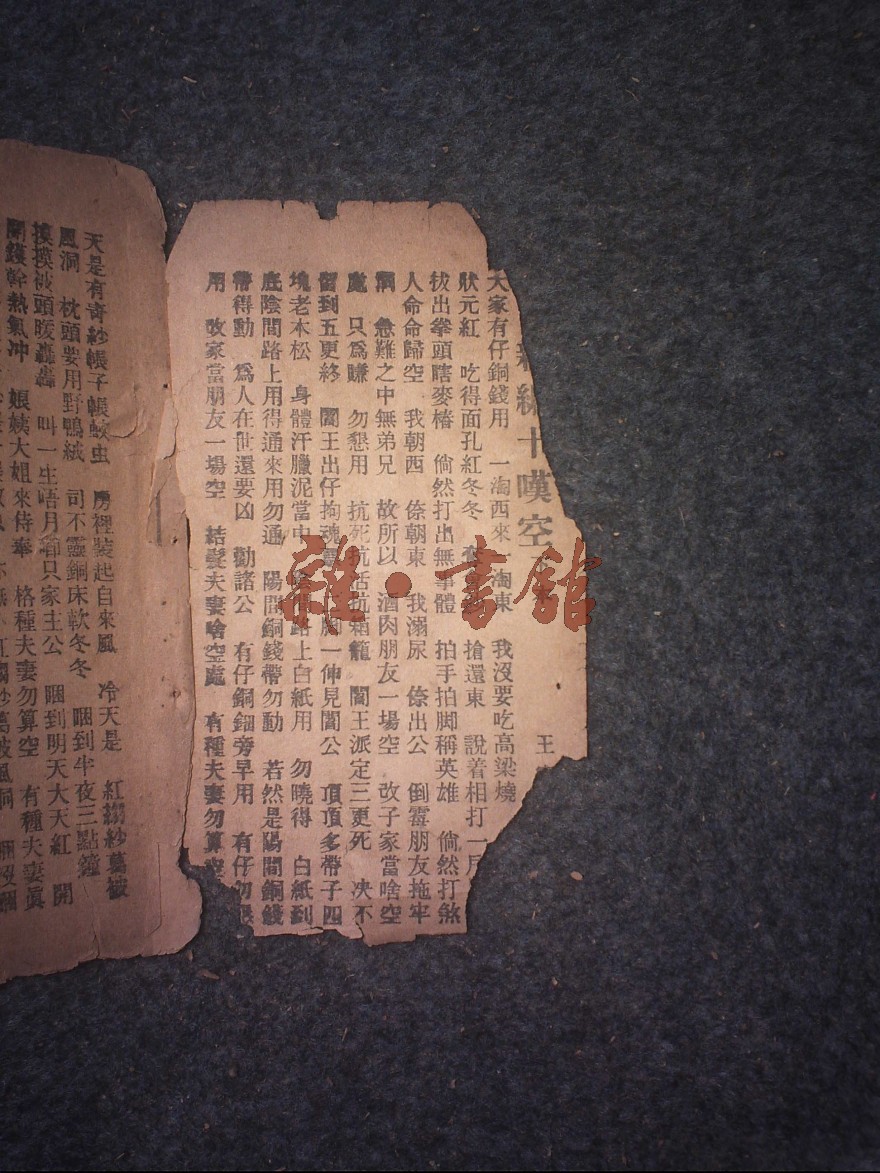 十嘆空
王
大家有仔銅錢用 一淘西來一淘東 我沒要吃高粱燒
狀元紅 吃得面孔紅冬冬 搶還東 說着相打一
拔出拳頭瞎麥樁 倘然打出無事體 拍手拍脚稱英雄 倘然打煞
人命命歸空 我朝西 倷朝東 我溺尿 倷出公 倒霉朋友拖牢
急難之中無弟兄 故所以 酒肉朋友一場空 敗子家當啥空
處 只爲賺 勿懇用 抗死抗活抗箱籠 閻王派定三更死 决不
留到五更終 閻王出仔拘魂 脚一伸見閻公 頂頂多帶子四
塊老本松 身體汗臘泥當中 路上白紙用 勿曉得 白紙到
底陰間路上用得通來用勿通 陽間銅錢帶勿動 若然是陽間銅錢
帶得動 爲人在世還要凶 勸諸公 有仔銅鈿旁早用 有仔勿
用 敗家當朋友一場空 結髮夫妻啥空處 有種夫妻勿算空
天是有奇紗帳子帳蚊虫 房裡裝起自來風 冷天是 紅縐紗葛被
風洞 枕頭要用野鴨絨 司不靈鋼床軟冬冬 睏到半夜三點鐘
摸摸被頭暖轟轟 叫一生唔月 只家主公 睏到明天大天紅 開
熱氣冲 娘姨大姐來侍奉 格種夫妻勿算空 有種夫妻眞
雜·書館